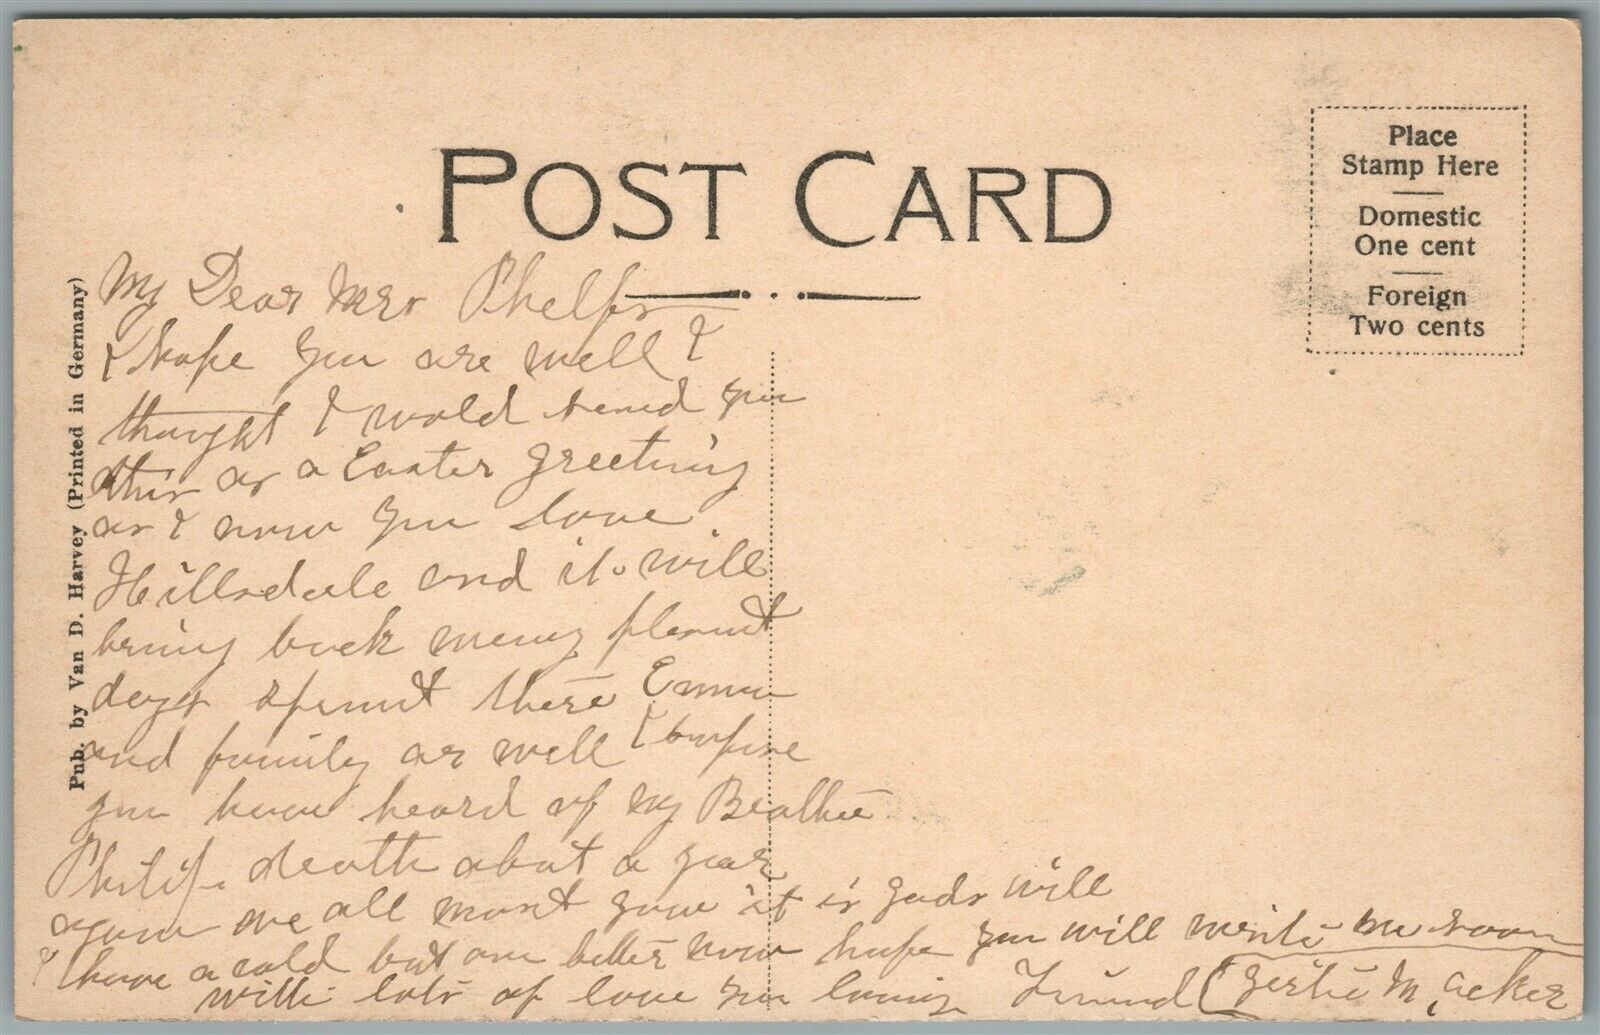 POST CARD
Place
Stamp Here
Domestic
One cent
Foreign
Two cents
Pub. by Van D. Harvey (Printed in Germany)
My Dear Mrs Phelps
I hope you are well I
thought I wold send you
this as a Easter greeting
as I now you love
Hillsdale and it will
bring back meny plesant
days spent there Emma
and family as well I
you have heard of my Brother
Philip death about a year
we all must gow it is gods will
I have a cold but am better now hope you will write me soon
with lots of love you loving Friend Gertie M. Acker